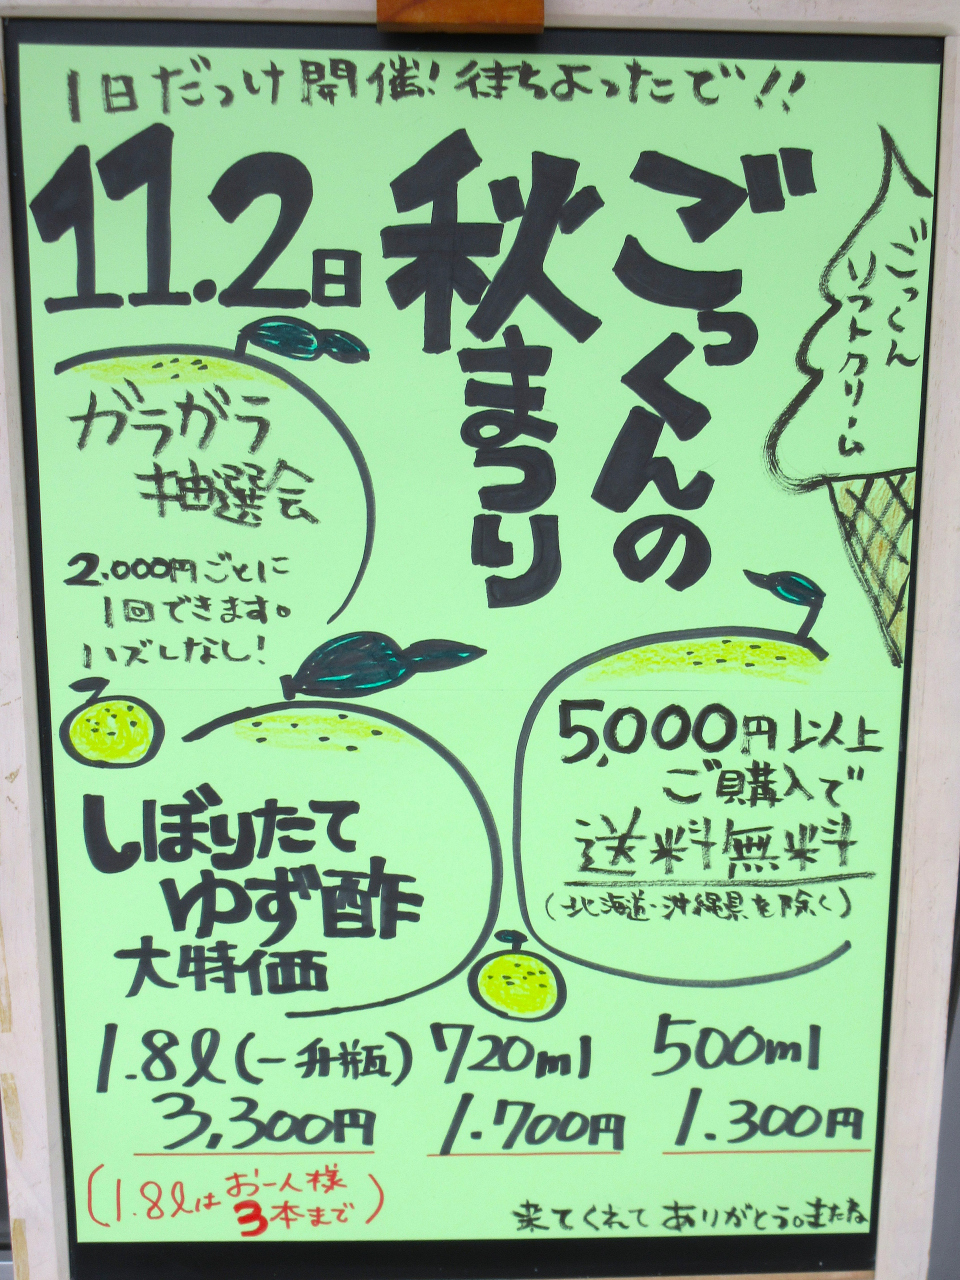 1日だっけ開催!待ちよったで!!
11.2日
ごっくんの
秋まつり
ごっくん
ソフトクリーム
ガラガラ
抽選会
2.000円ごとに
1回できます。
ハズレなし!
5,000円以上
ご購入で
送料無料
(北海道・沖縄県を除く)
しぼりたて
ゆず酢
大特価
1.8ℓ(一升瓶) 720ml 500ml
3,300円 1.700円 1.300円
(1.8ℓはお一人様
3本まで)
来てくれてありがとう。またね